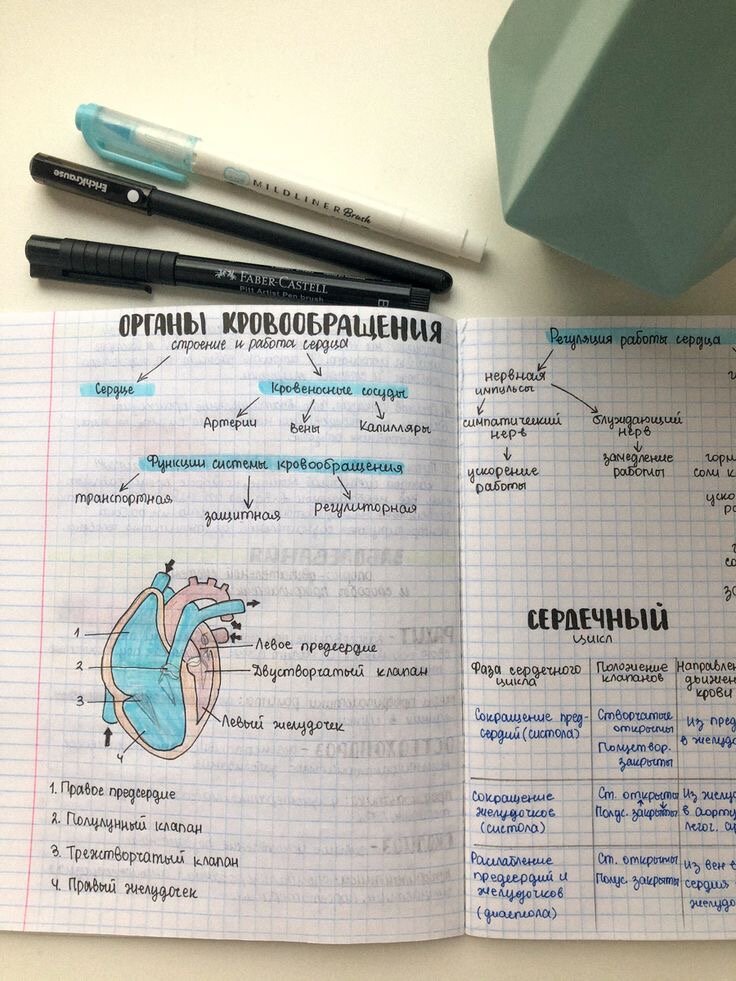 MILDLINER Brush
ErichKrause
FABER-CASTELL
Pitt Artist Pen brush
B
ОРГАНЫ КРОВООБРАЩЕНИЯ
строение и работа сердца
Сердце
Кровеносные сосуды
Артерии
Вены
Капилляры
Функции системы кровообращения
транспортная
защитная
регулиторная
1
2
3
4
Левое предсердие
Двустворчатый клапан
Левый желудочек
1. Правое предсердие
2. Полулунный клапан
3. Трехстворчатый клапан
4. Правый желудочек
Регуляция работы сердца
нервная
импульсы
симпатический
нерв
блуждающий
нерв
ускорение
работы
замедление
работы
горм
соли к
уско
ра
СЕРДЕЧНЫЙ
цикл
Фаза сердечного
цикла
Положение
клапанов
Направлен
движен
крови
Сокращение пред-
сердий (систола)
Створчатые
открыты
Полуствор.
закрыты
Из пред
в желудо
Сокращение
желудочков
(систола)
Ст. открыты
Полус. закрыты
Из желу
в аорту
легоч. ар
Расслабление
предсердий и
желудочков
(диастола)
Ст. открыты
Полус. закрыты
Из вен в
сердия
желудо